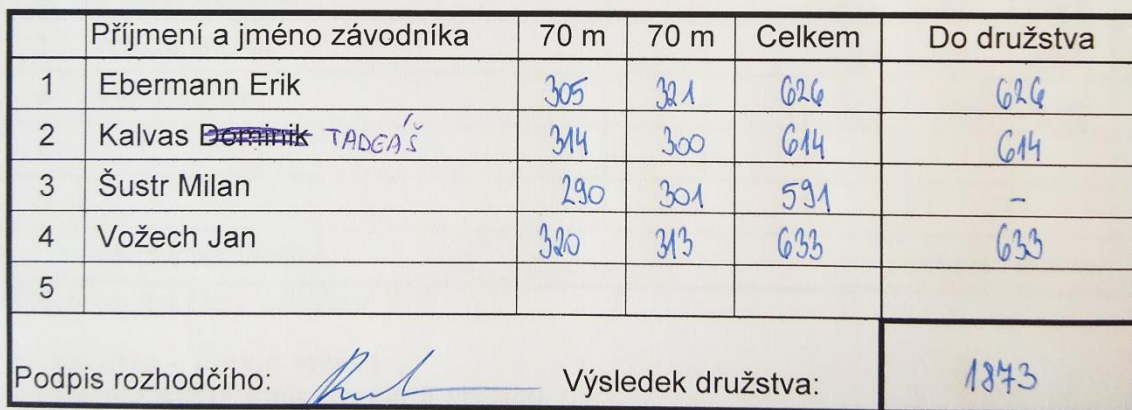 Příjmení a jméno závodníka 70 m 70 m Celkem Do družstva
1 Ebermann Erik 305 321 626 626
2 Kalvas Dominik TADEÁŠ 314 300 614 614
3 Šustr Milan 290 301 591 -
4 Vožech Jan 320 313 633 633
5
Podpis rozhodčího: Výsledek družstva: 1873